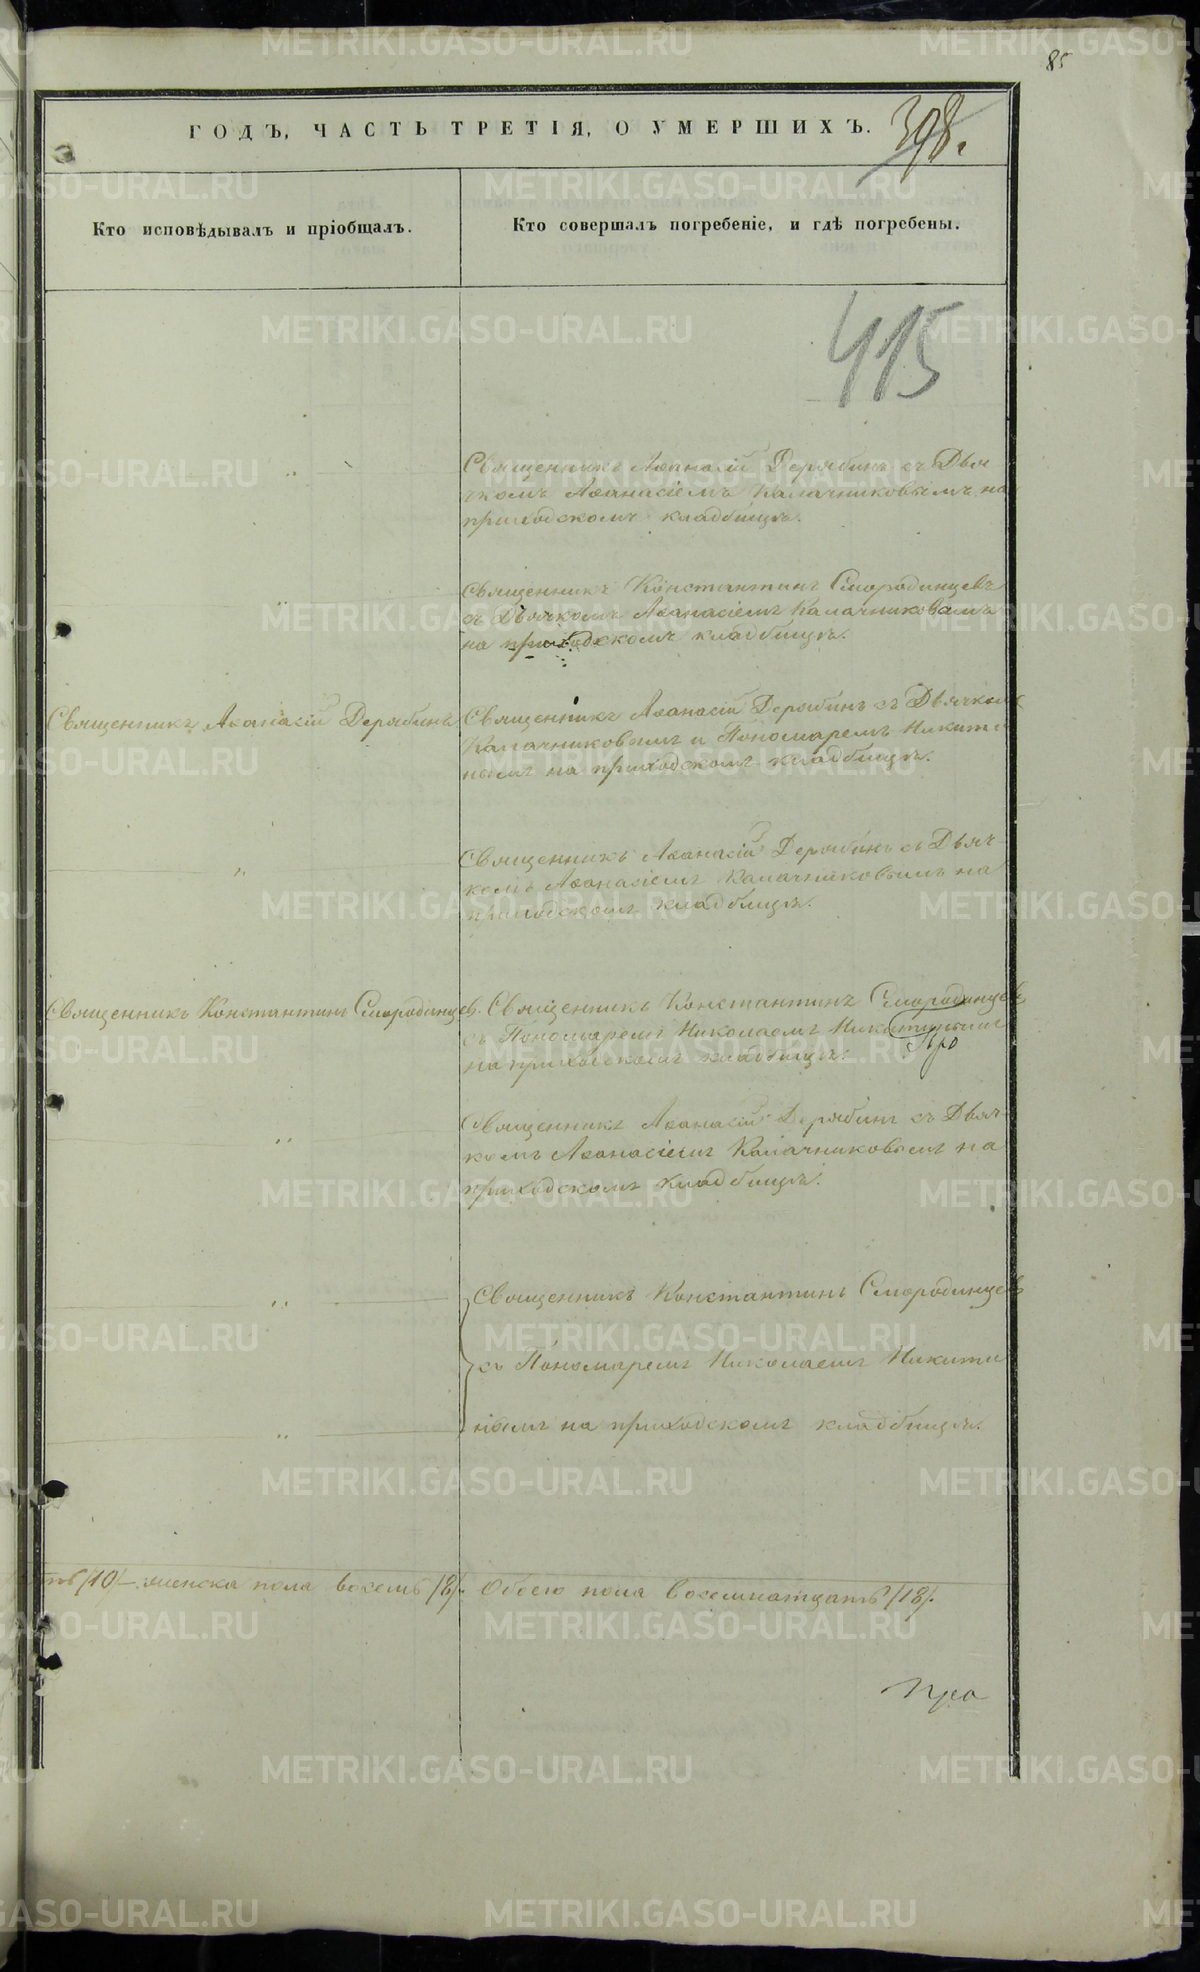 85
ГОДЪ, ЧАСТЬ ТРЕТІЯ, О УМЕРШИХЪ.
398.
Кто исповѣдывалъ и пріобщалъ.
Кто совершалъ погребеніе, и гдѣ погребены.
415
Священникъ Аѳанасій Дерябинъ съ Дья
чкомъ Аѳанасіемъ Калачниковымъ на
приходскомъ кладбищѣ.
Священникъ Константинъ Смородинцевъ
съ Дьячкомъ Аѳанасіемъ Калачниковымъ
на приходскомъ кладбищѣ.
Священникъ Аѳанасій Дерябинъ
Священникъ Аѳанасій Дерябинъ съ Дьячкомъ
Калачниковымъ и Пономаремъ Никити
нымъ на приходскомъ кладбищѣ.
Священникъ Аѳанасій Дерябинъ съ Дьяч
комъ Аѳанасіемъ Калачниковымъ на
приходскомъ кладбищѣ.
Священникъ Константинъ Смородинцев.
Священникъ Константинъ Смородинцев
съ Пономаремъ Николаемъ Никитинымъ
на приходскомъ кладбищѣ.
Про
Священникъ Аѳанасій Дерябинъ съ Дьяч
комъ Аѳанасіемъ Калачниковымъ на
приходскомъ кладбищѣ.
Священникъ Константинъ Смородинцев
съ Пономаремъ Николаемъ Никити
нымъ на приходскомъ кладбищѣ.
ть /10/ – женска пола восемь /8/. Обоего пола восемнатцать /18/.
METRIKI.GASO-URAL.RU